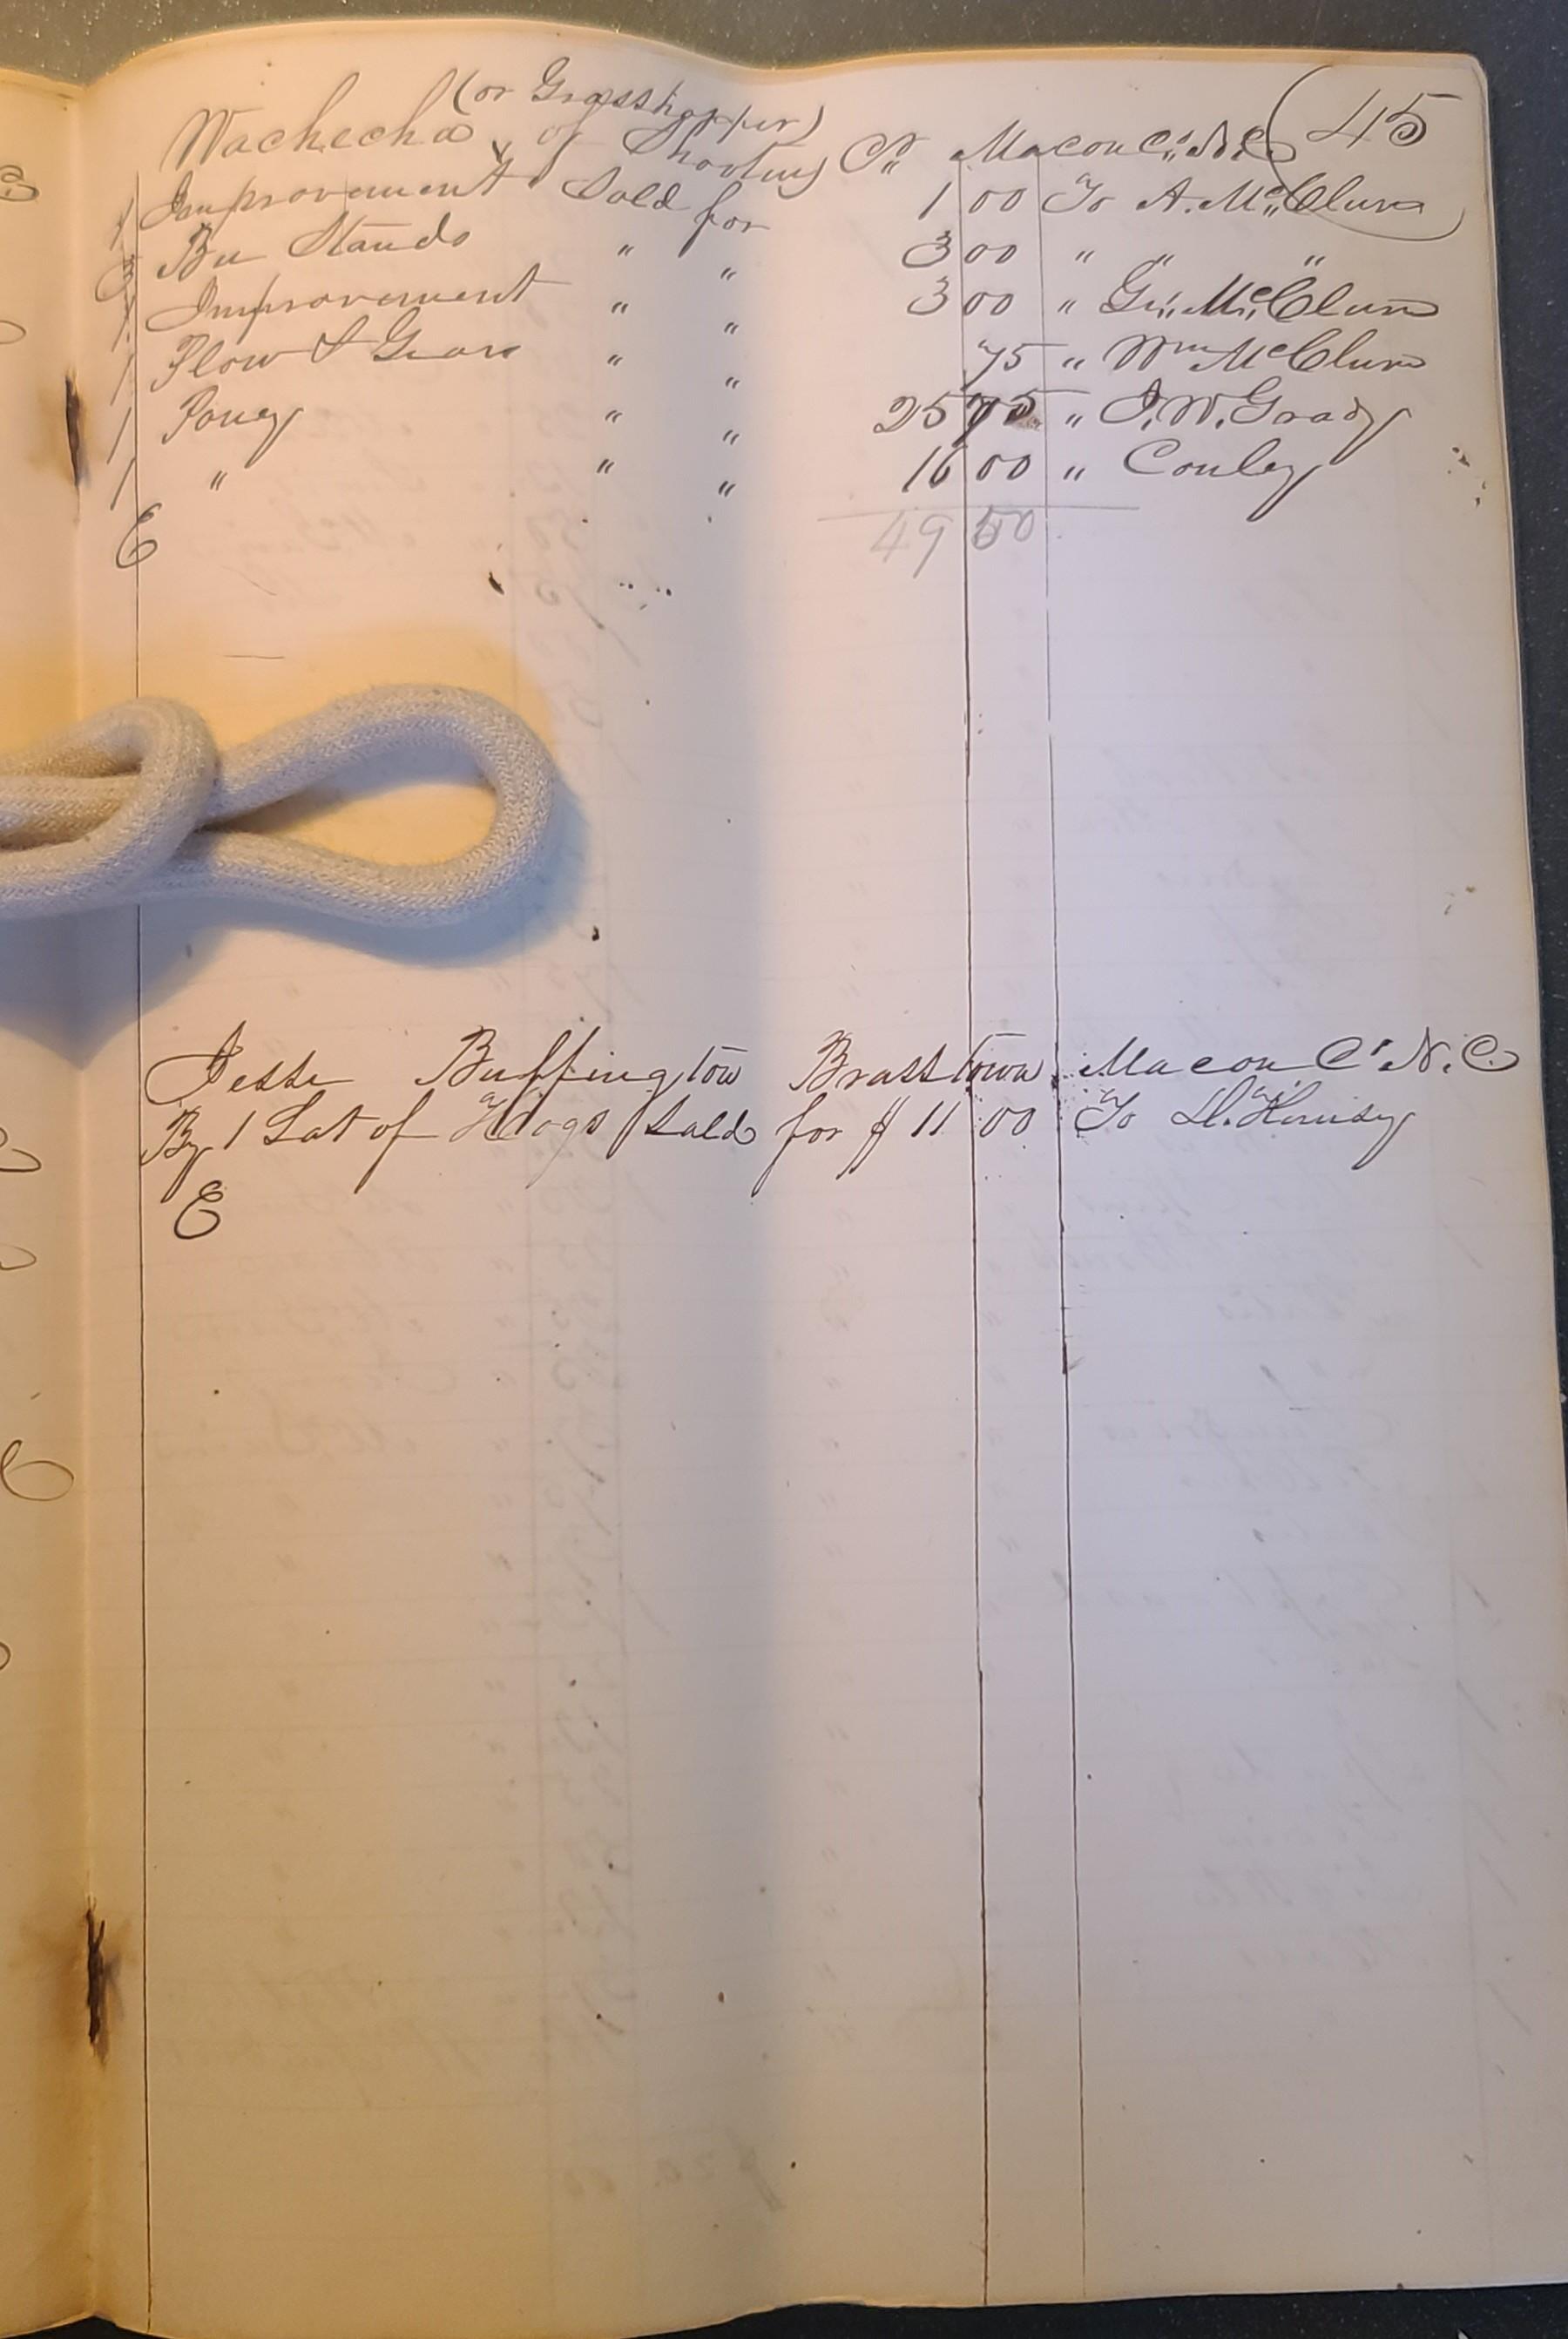 45
(or Grasshopper)
Wachecha, of Shooting Cr. Macon Co. N.C.
1 Improvement Sold for 1 00 To A. McClure
3 Bee Stands " " 3 00 " " "
1 Improvement " " 3 00 " Gr. McClure
1 Plow & Gears " " 75 " Wm McClure
1 Poney " " 25 75 " J. W. Grady
1 " " " 16 00 " Conley
E
49 50
Jesse Buffington Brasstown Macon Co. N. C.
By 1 Lot of Hogs Sold for $ 11 00 To H.
E